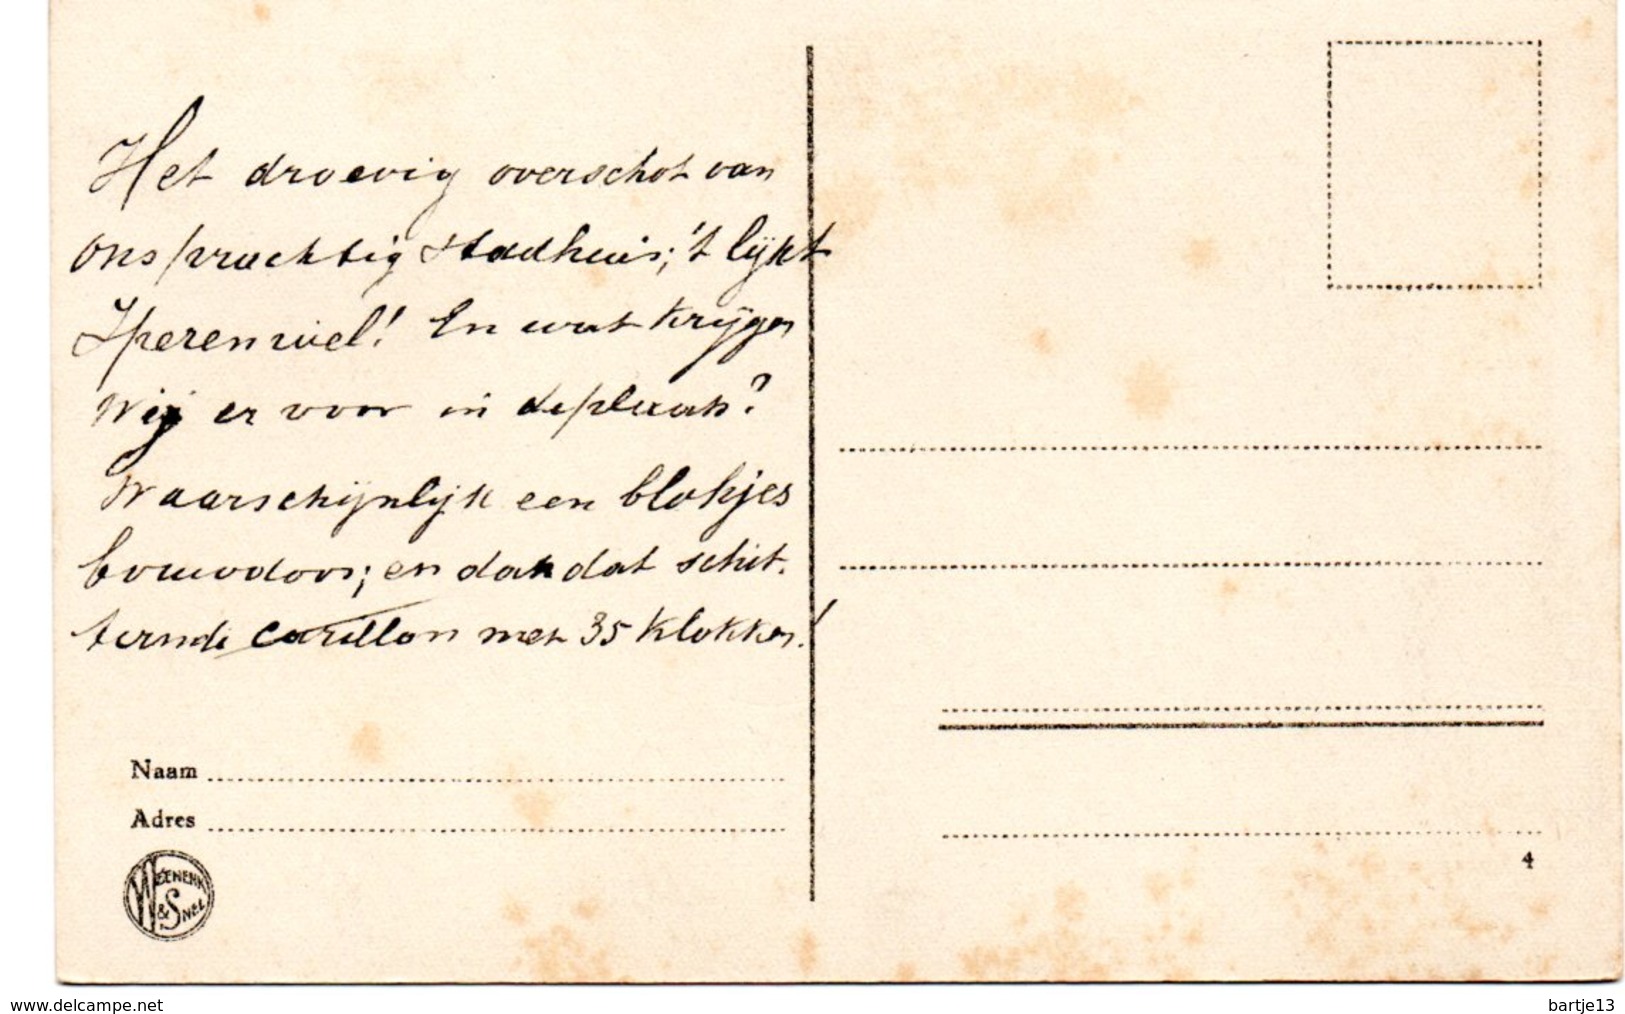 Het droevig overschot van
ons prachtig stadhuis; 't lijkt
Iperen wel! En wat krijgen
wij er voor in de plaats?
Waarschijnlijk een blokjes
bouwdoos; en dan dat schit-
terende carillon met 35 klokken!
Naam
Adres
WEENENK & SNEL
4
www.delcampe.net
bartje13